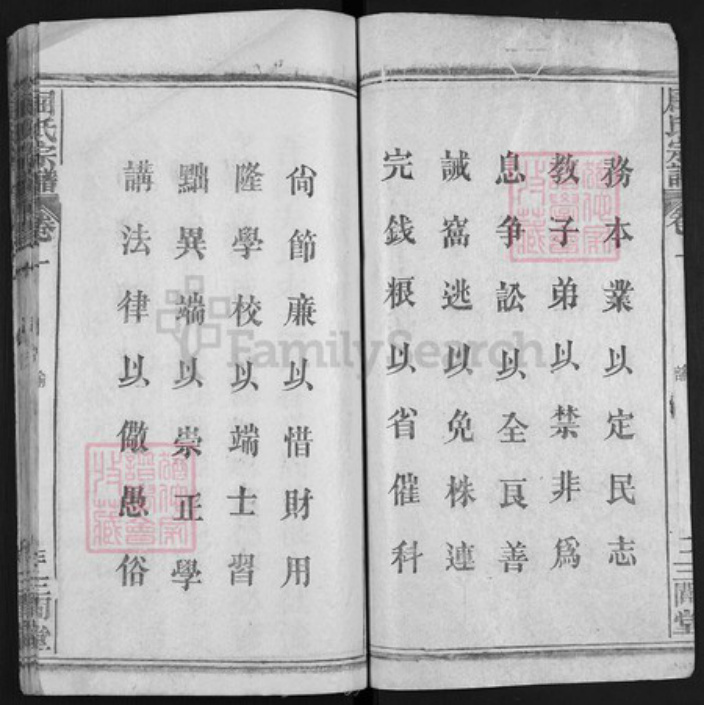 務本業以定民志
教子弟以禁非為
息争訟以全良善
誡窩逃以免株連
完銭粮以省催科
尙節亷以惜財用
隆學校以端士習
黜異端以崇正學
講法律以儆愚俗
屈氏宗譜
卷一
諭
三閭堂
FamilySearch